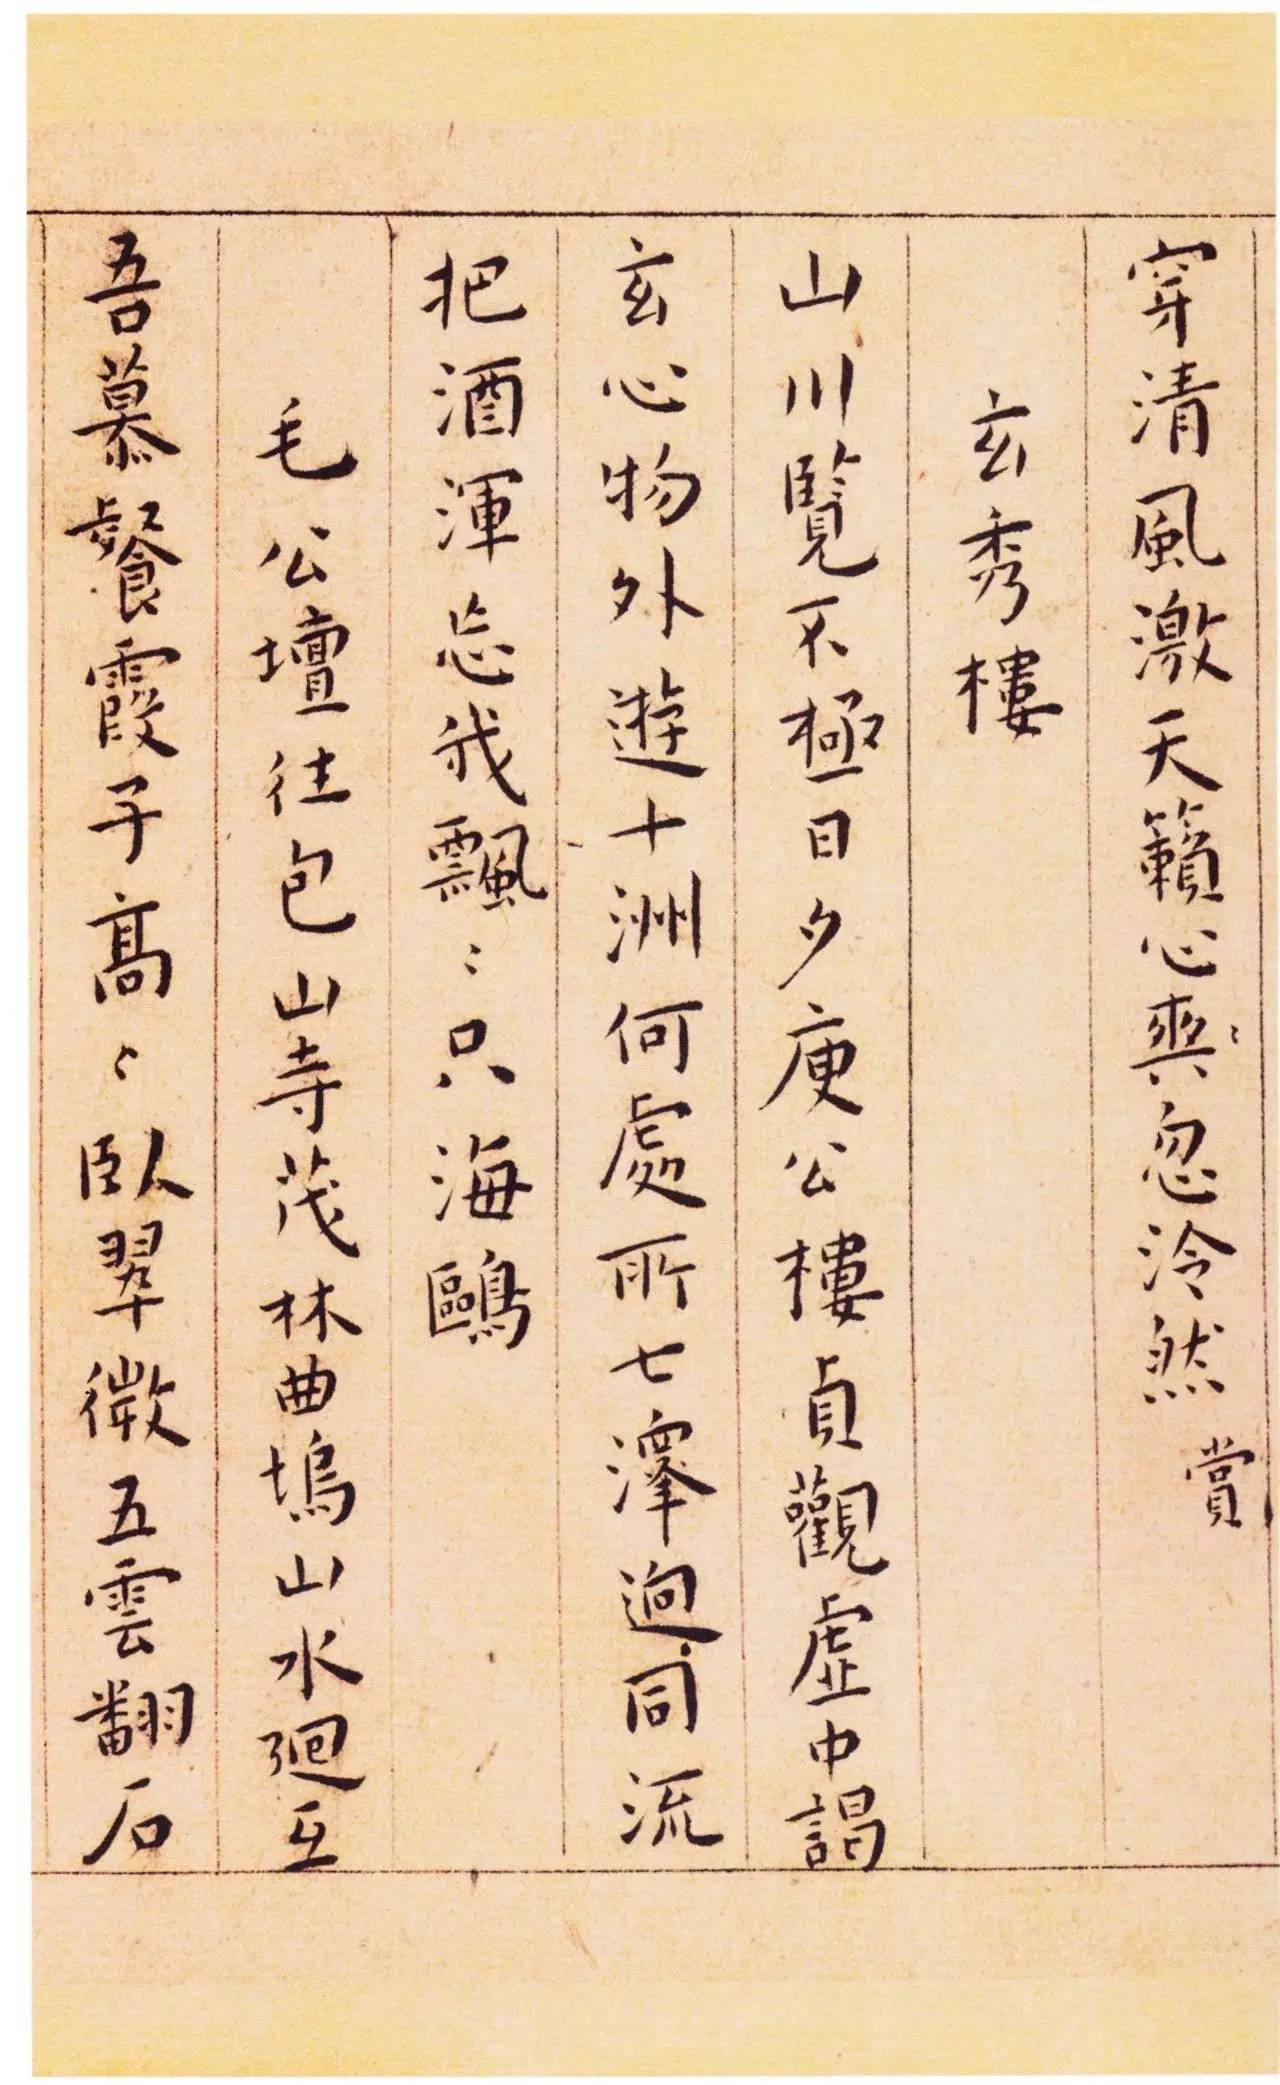 穿清風激天籟心與忽泠然賞
玄秀樓
山川覽不極日夕庾公樓貞觀虛中謁
玄心物外遊十洲何處所七澤迥同流
把酒渾忘我飄〻只海鷗
毛公壇往包山寺茂林曲塢山水廻互
吾慕餐霞子高〻臥翠微五雲翻石